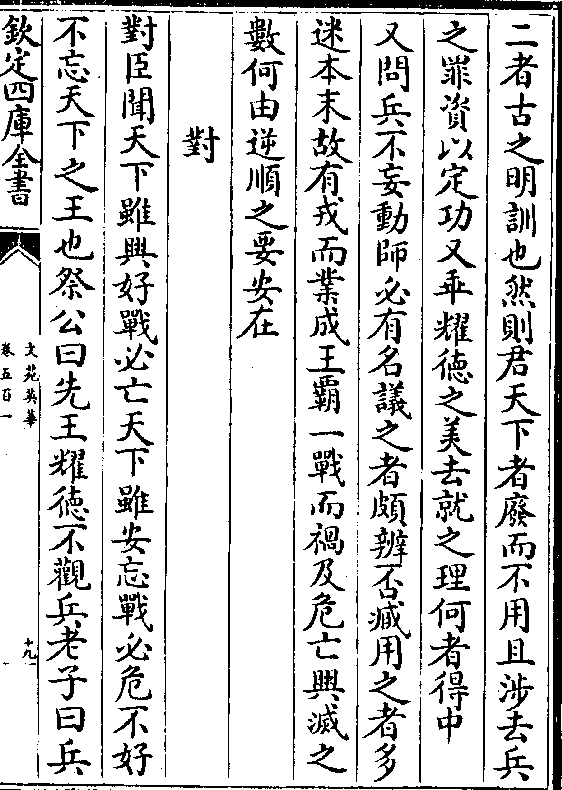 二者古之明訓也然則君天下者廢而不用且涉去兵
之罪資以定功又乖耀德之美去就之理何者得中
又問兵不妄動師必有名議之者頗辨否臧用之者多
迷本末故有戎而業成王覇一戰而禍及危亡興滅之
數何由逆順之要安在
對
對臣聞天下雖興好戰必亡天下雖安忘戰必危不好
不忘天下之王也祭公曰先王耀德不觀兵老子曰兵
欽定四庫全書
文苑英華
卷五百一
十九